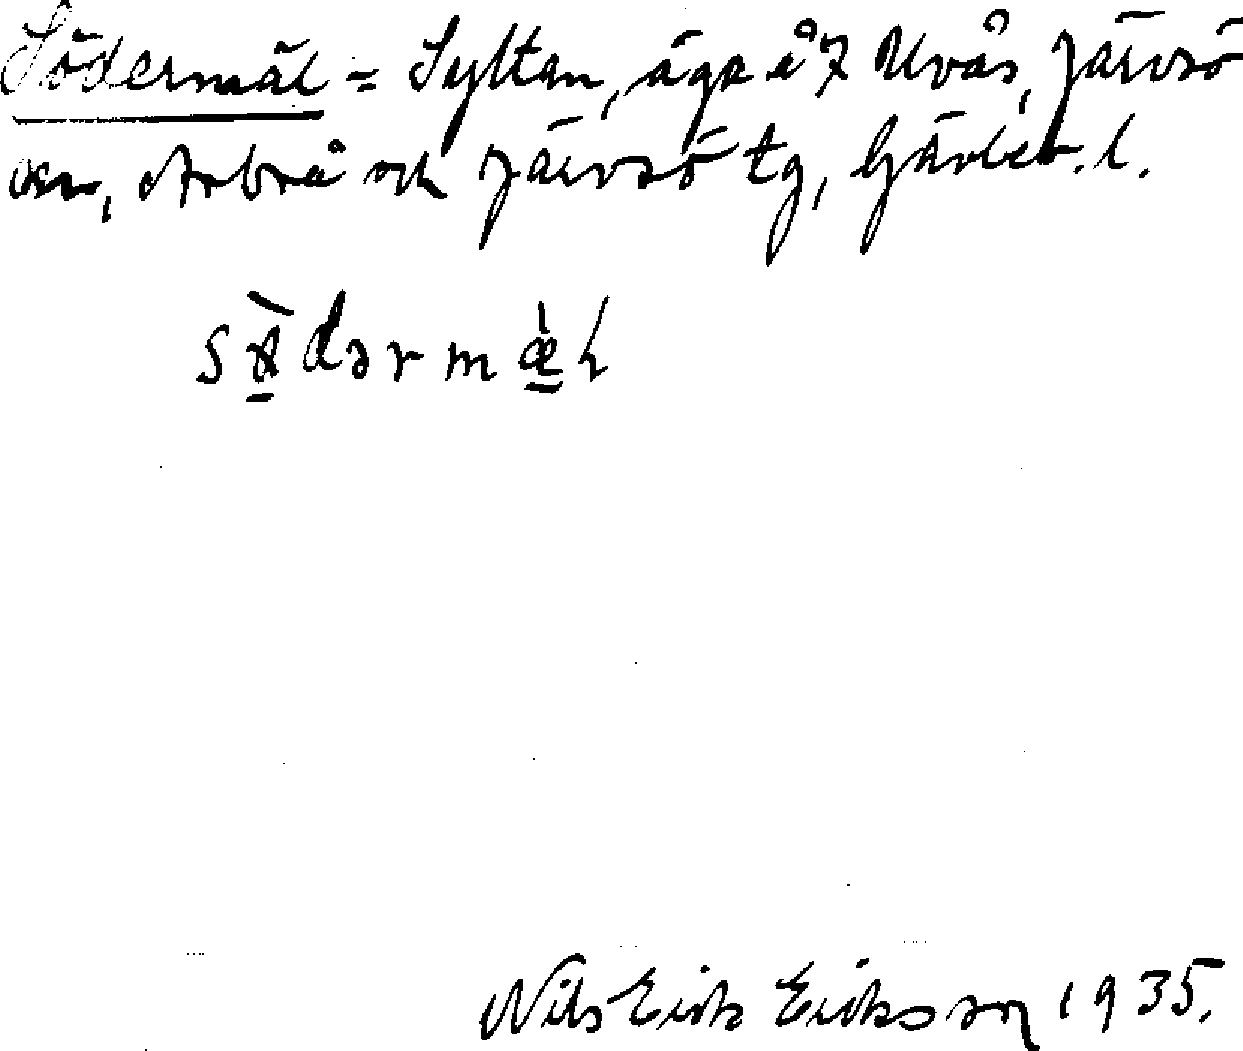 Södermäl = Syltan, äga å 7 Uvås, Järvsö
sn, Arbrå och Järvsö tg, Gävleb. l.
Nils Erik Eriksson 1935.